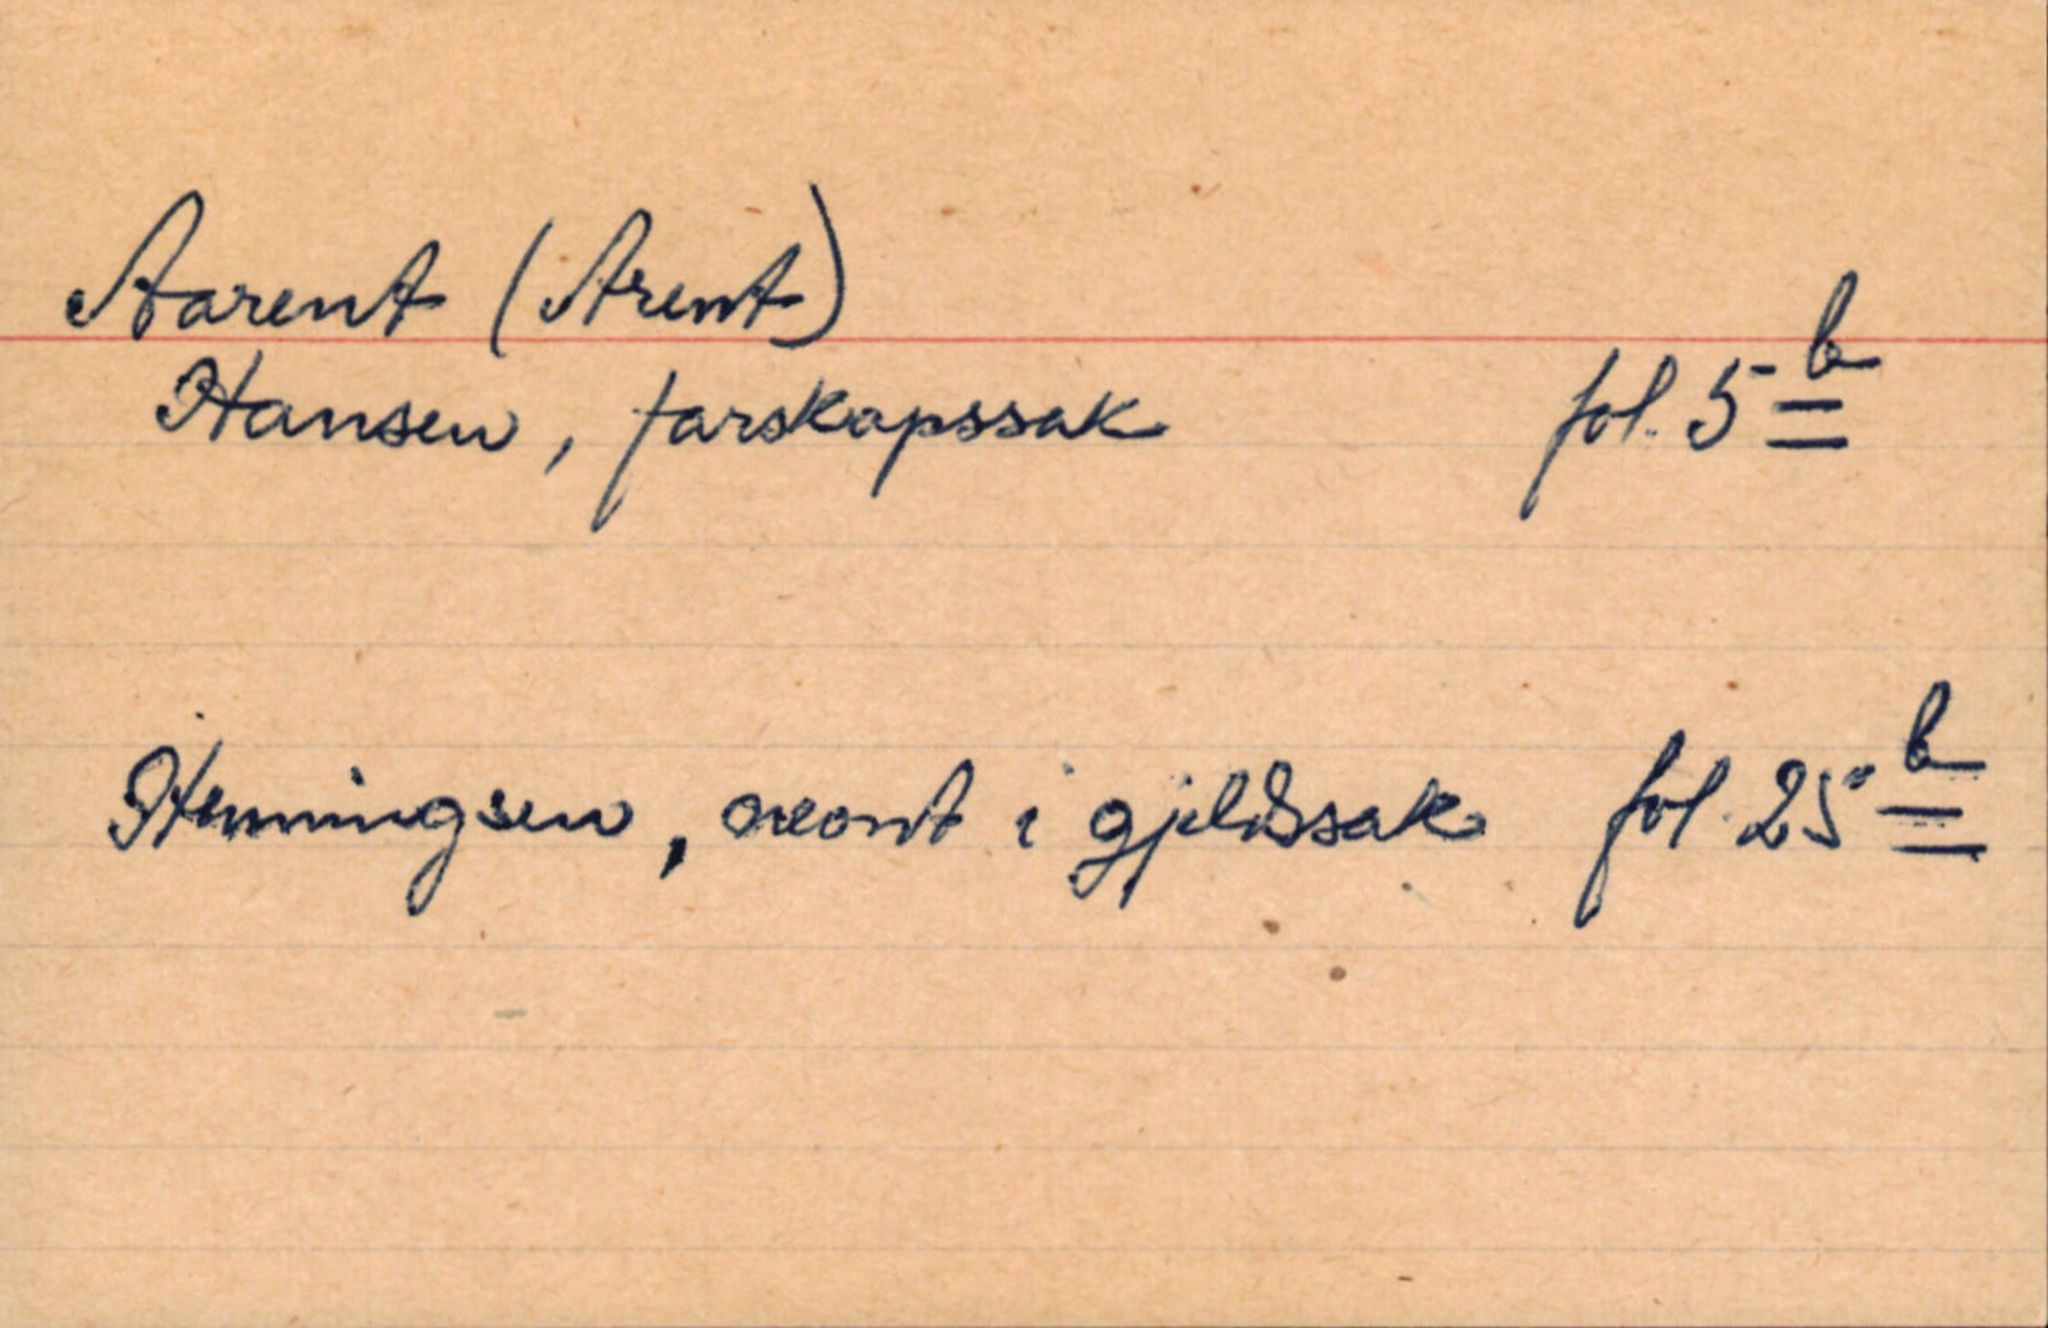 Aarent (Arent)
Hansen, farskapssak fol. 5 b
Henningsen, i gjeldssak fol. 25 b